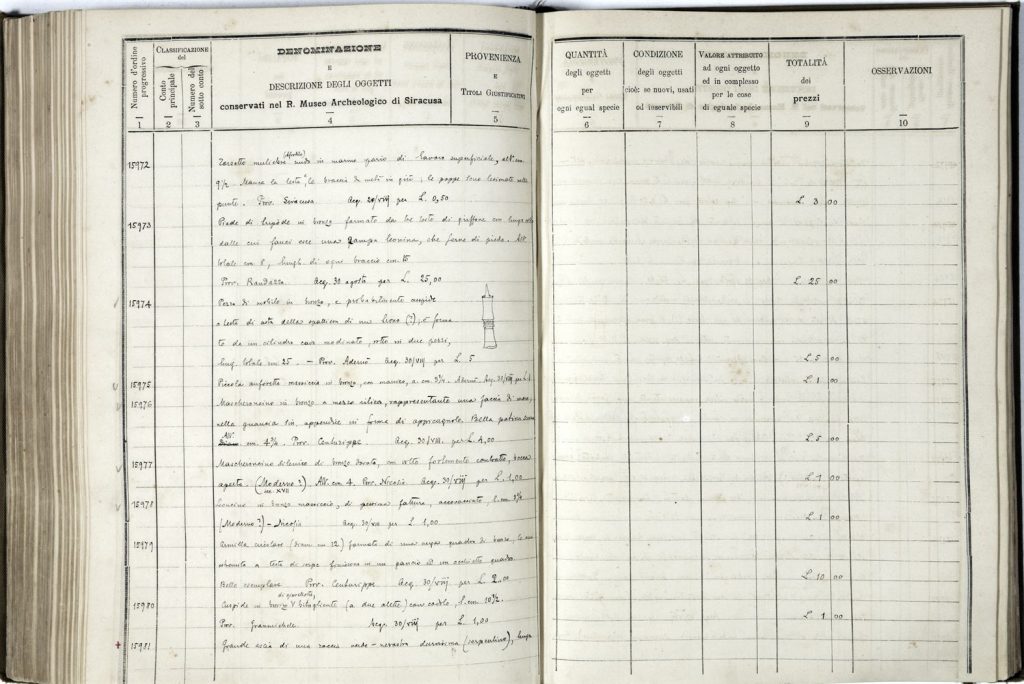 Numero d'ordine progressivo
1
CLASSIFICAZIONE
del
Conto principale
2
Numero del sotto conto
3
DENOMINAZIONE
E
DESCRIZIONE DEGLI OGGETTI
conservati nel R. Museo Archeologico di Siracusa
4
PROVENIENZA
E
TITOLI GIUSTIFICATIVI
5
QUANTITÀ
degli oggetti
per
ogni egual specie
6
CONDIZIONE
degli oggetti
cioè: se nuovi, usati
od inservibili
7
VALORE ATTRIBUITO
ad ogni oggetto
ed in complesso
per le cose
di eguale specie
8
TOTALITÀ
dei
prezzi
9
OSSERVAZIONI
10
(Afrodite)
15972 Torsetto muliebre nudo in marmo pario di lavoro superficiale, alt. cm.
9 1/2. Manca la testa, le braccia da metà in giù; le poppe sono lesionate nelle
punte. Prov. Siracusa Acq. 20/VIII per L. 0,50 L. 3 00
15973 Piede di tripode in bronzo formato da tre teste di griffone con lungo collo
dalle cui fauci esce una zampa leonina, che forma di piede. Alt.
totale cm 8, lungh. di ogni braccio cm. 15
Prov. Randazzo Acq. 30 agosto per L. 25,00 L. 25 00
15974 Pezzo di mobile in bronzo, e probabilmente cuspide
o testa di asta della spalliera di un trono (?); è forma
to da un cilindro cavo modinato, rotto in due pezzi,
lung. totale cm 25. – Prov. Adernò Acq. 30/VIII per L. 5 L. 5 00
15975 Piccola anforetta massiccia in bronzo, con manico, a. cm 3 3/4. Adernò. Acq. 30/VIII per L. 1 L. 1 00
15976 Mascheroncino in bronzo a mezzo rilievo, rappresentante una faccia di moro,
nella guancia sin. appendice in forma di appiccagnolo. Bella patina
Alt.
cm. 4 3/4. Prov. Centuripe. Acq. 30/VIII. per L. 4,00 L. 5 00
15977 Mascheroncino silenico di bronzo dorato, con volto fortemente contratto, bocca
aperta. (Moderno?) Alt. cm 4. Prov. Nicosia Acq. 30/VIII per L. 1,00 L. 1 00
sec. XVII
15978 Leoncino in bronzo massiccio, di pessima fattura, accovacciato, l. cm 3 3/4
(Moderno?) – Nicosia Acq. 30/VIII per L. 1,00 L. 1 00
15979 Armilla circolare (diam cm 12) formata di una verga quadra di bronzo, le cui
a testa di serpe finiscono in un pancio ed un occhietto quadro.
Bello esemplare Prov. Centuripe Acq. 30/VIII per L 2.00 L. 10 00
di giavellotto
15980 Cuspide in bronzo V bitagliente (a due alette) con codolo, l. cm 10 1/2.
Prov. Grammichele Acq. 30/VIII per L. 1,00 L. 1 00
+ 15981 Grande ascia di una roccia verde-nerastra durissima (serpentino), lunga